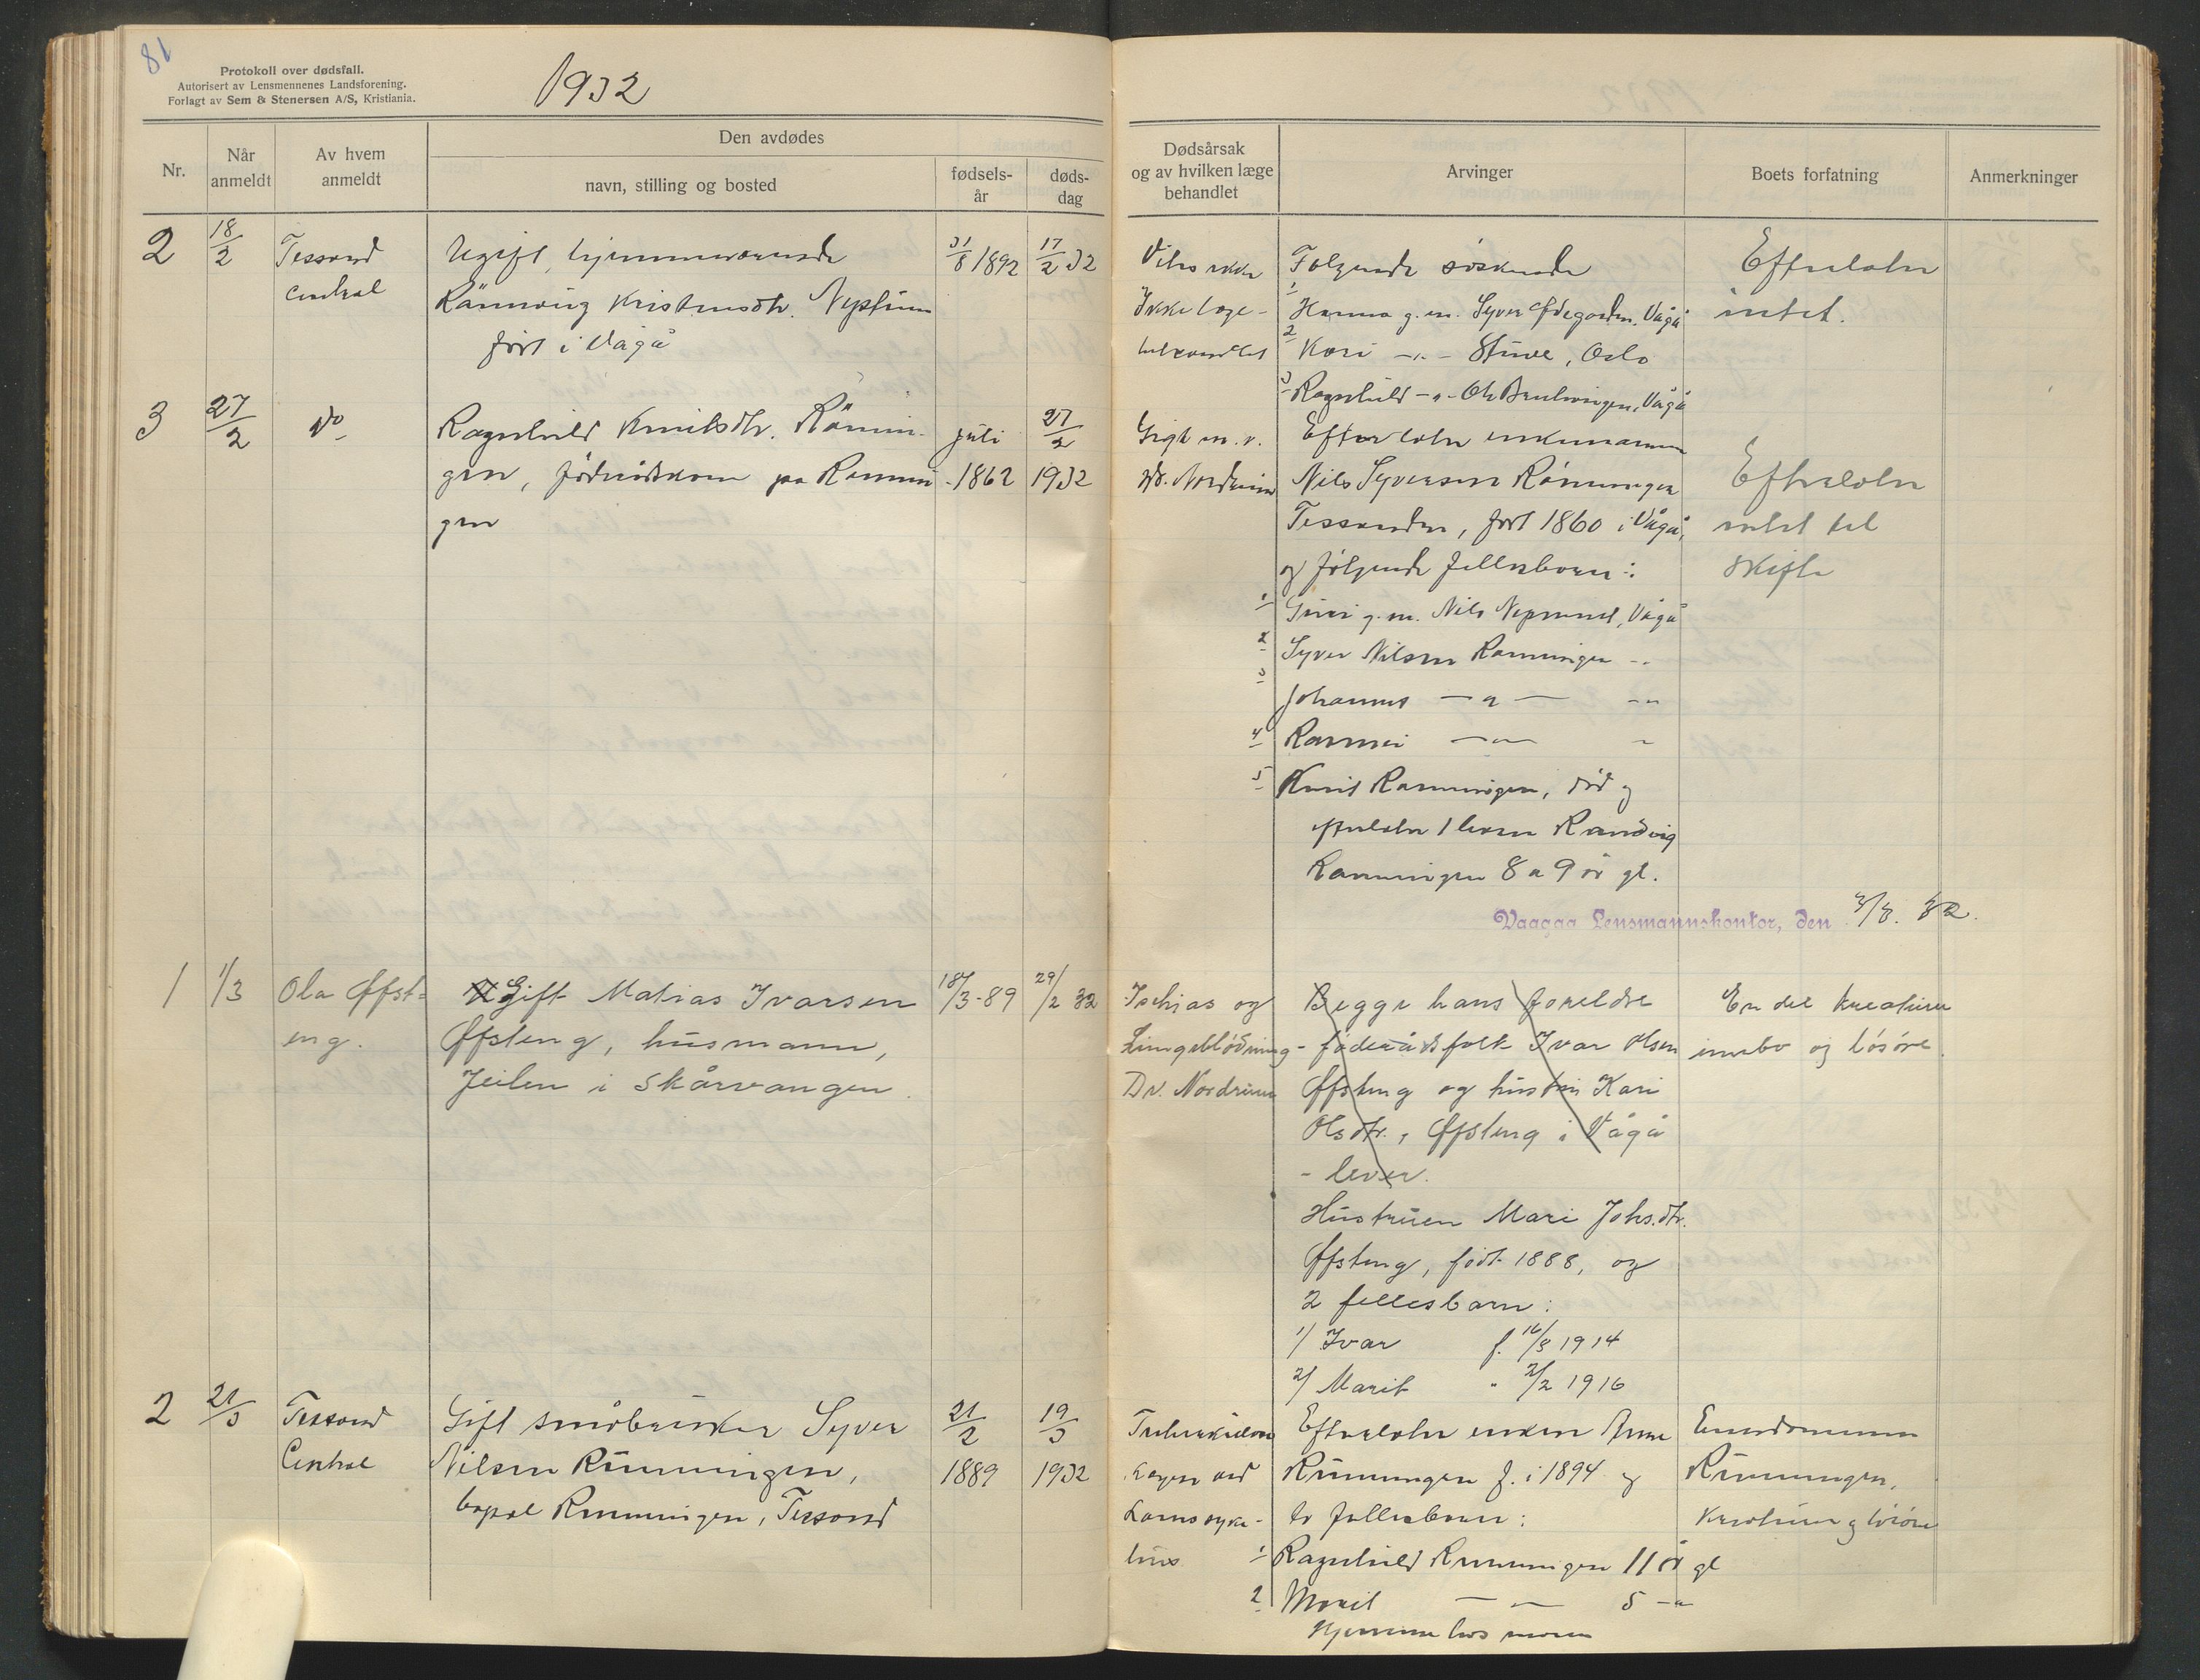 81
Protokoll over dødsfall.
Autorisert av Lensmennenes Landsforening.
Forlagt av Sem & Stenersen A/S, Kristiania.
1932
Nr.
Når anmeldt
Av hvem anmeldt
Den avdødes
navn, stilling og bosted
fødsels-år
døds-dag
Dødsårsak og av hvilken læge behandlet
Arvinger
Boets forfatning
Anmerkninger
2 18/2 Tessand Ugift, hjemmeværende 31/8 1892 17/2 32
Central Rännvig Kristensdtr.
født i Vågå
Vites ikke Følgende søskende Efterlater
Ikke læge- 1 Hanna g.m. Syver Ødegarden, Vågå intet.
behandlet 2 Kari -"- Stuve, Oslo
3 Ragnhild -"- Ola
Vågå
3 27/2 Do Ragnhild Knutsdtr. Rönnin- juli 27/2
gen, föderådskone på Rønnin- 1862 1932
gen
Gigt m.v. Efterlater enkemannen
Dr. Nordrum Nils Syversen Rönningen Efterlater
Tessanden, født 1860 i Vågå, intet til
og følgende fellesbarn: skifte
1 Guri g.m. Nils
Vågå
2 Syver Nilsen Rønningen -"-
3 Johannes -"- -"-
4 -"- -"-
5 Knut Rønningen, död og
efterlater 1 barn Randvig
Rønningen 8 a 9 år gl.
Vaagaa Lensmannskontor, den 3/3. 32.
1 1/3 Ola Øffst- Gift Matias Ivarsen 18/3-89 29/2 32
eng. Øffsteng, husmann,
Jeilen i Skårvangen.
Ischias og Begge hans foreldre En del kreaturer
Lungeblødning - føderådsfolk Ivar Olsen innbo og løsøre.
Dr. Nordrum Øffsteng og hustru Kari
Olsdtr., Øffsteng i Vågå
- lever.
Hustruen Mari Johs.dtr.
Øffsteng, født 1888, og
2 fellesbarn:
1/ Ivar f. 16/3 1914
2/ Marit " 2/2 1916
2 21/3 Tessand Gift småbruker Syver 21/2 19/3
Central Nilsen Rønningen, 1889 1932
bopæl Rønningen, Tessand
Tuberkulose Efterlater enken Anne Eiendommen
Lægen ved Rønningen f. i 1894 og Rønningen,
Loms syke- to fellesbarn: kreaturer og løsøre
hus 1 Ragnhild Rønningen 11 år gl
2 Marit -"- 5 -"-
Hjemme hos moren